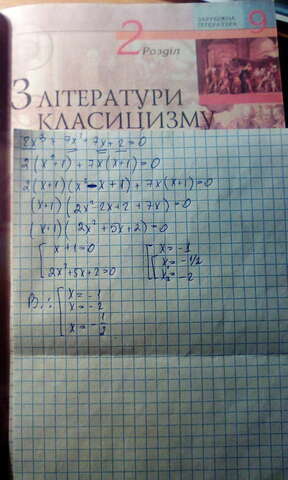 ЗАРУБІЖНА
ЛІТЕРАТУРА
9
2
Розділ
З ЛІТЕРАТУРИ
КЛАСИЦИЗМУ
2x³ + 7x² + 7x + 2 = 0
2(x³+1) + 7x(x+1) = 0
2(x+1)(x² - x + 1) + 7x(x+1) = 0
(x+1)(2x² - 2x + 2 + 7x) = 0
(x+1)(2x² + 5x + 2) = 0
[ x+1=0 [ x = -1
2x²+5x+2=0 [ x = -1/2
x₂ = -2
В.: [ x = -1
x = -2
x = -1/2